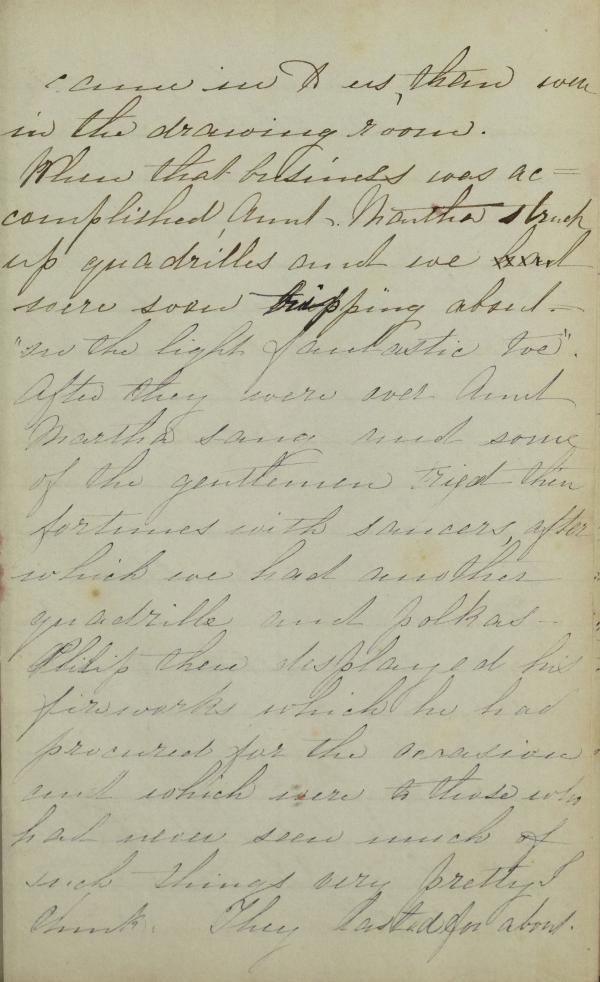 came in to us, then were
in the drawing room.
When that business was ac=
complished, Aunt Martha struck
up quadrilles and we had
were soon tripping about -
"on the light fantastic toe".
After they were over Aunt
Martha sang and some
of the gentlemen tried their
fortunes with saucers, after
which we had another
quadrille and polkas -
Philip then displayed his
fireworks which he had
procured for the occasion
and which were to those who
had never seen much of
such things very pretty I
think. They lasted for about.